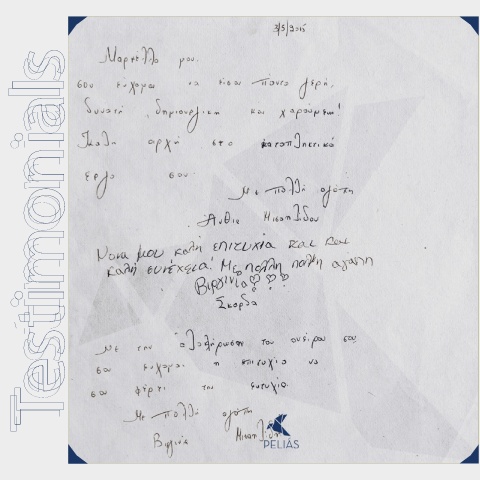 Testimonials
3/5/2015
Μαριέλλα μου.
σου εύχομαι να είσαι πάντα γερή,
δυνατή, δημιουργική και χαρούμενη!
Καλή αρχή στο καταπληκτικό
έργο σου.
Με πολλή αγάπη
Ανθία Μισαηλίδου
Νονα μου καλη επιτυχία και και
καλη συνέχεια! Με πολλη πολλη αγαπη
Βιργινια
Σκορδα
Με την ολοκλήρωση του ονείρου σου
σου εύχομαι η επιτυχία να
σου φέρει την ευτυχία.
Με πολλή αγάπη
PELIAS